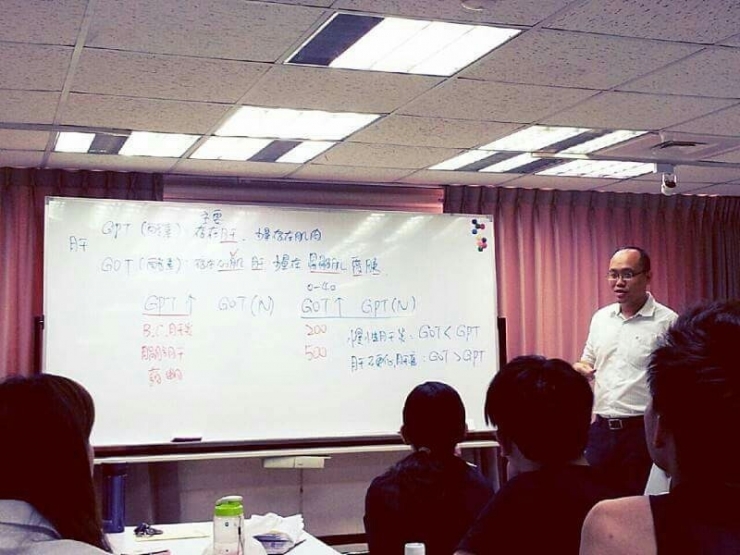 主要
GPT (丙) 存在肝, 少量存在肌肉
肝
GOT (丙) 存在心肌 肝 少量在 骨骼肌
0-40
GPT↑ GOT(N) GOT↑ GPT(N)
B.C.肝炎 200 慢性肝炎: GOT < GPT
脂肪肝 500 肝硬化,肝癌: GOT > GPT
藥物